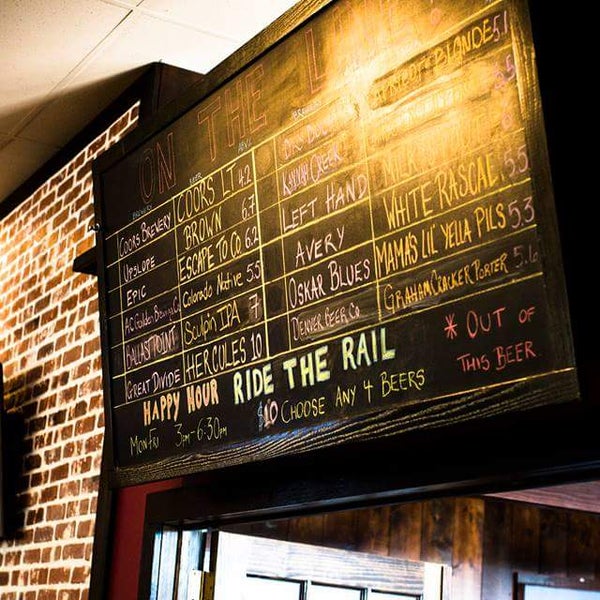 ON THE
BREWERY BEER ABV
COORS BREWERY COORS LT 4.2
UPSLOPE BROWN 6.7
EPIC ESCAPE TO CO 6.2
AC Golden Brewing Co Colorado Native 5.5
BALLAST POINT Sculpin IPA 7
GREAT DIVIDE HERCULES 10
BREWERY
DRY DOCK APRICOT BLONDE 5.1
KANNAH CREEK
LEFT HAND MILK
AVERY WHITE RASCAL 5.5
OSKAR BLUES MAMA'S LIL YELLA PILS 5.3
DENVER BEER CO GRAHAM CRACKER PORTER 5.6
* OUT OF
THIS BEER
HAPPY HOUR RIDE THE RAIL
MON-FRI 3PM-6:30PM $10 CHOOSE ANY 4 BEERS